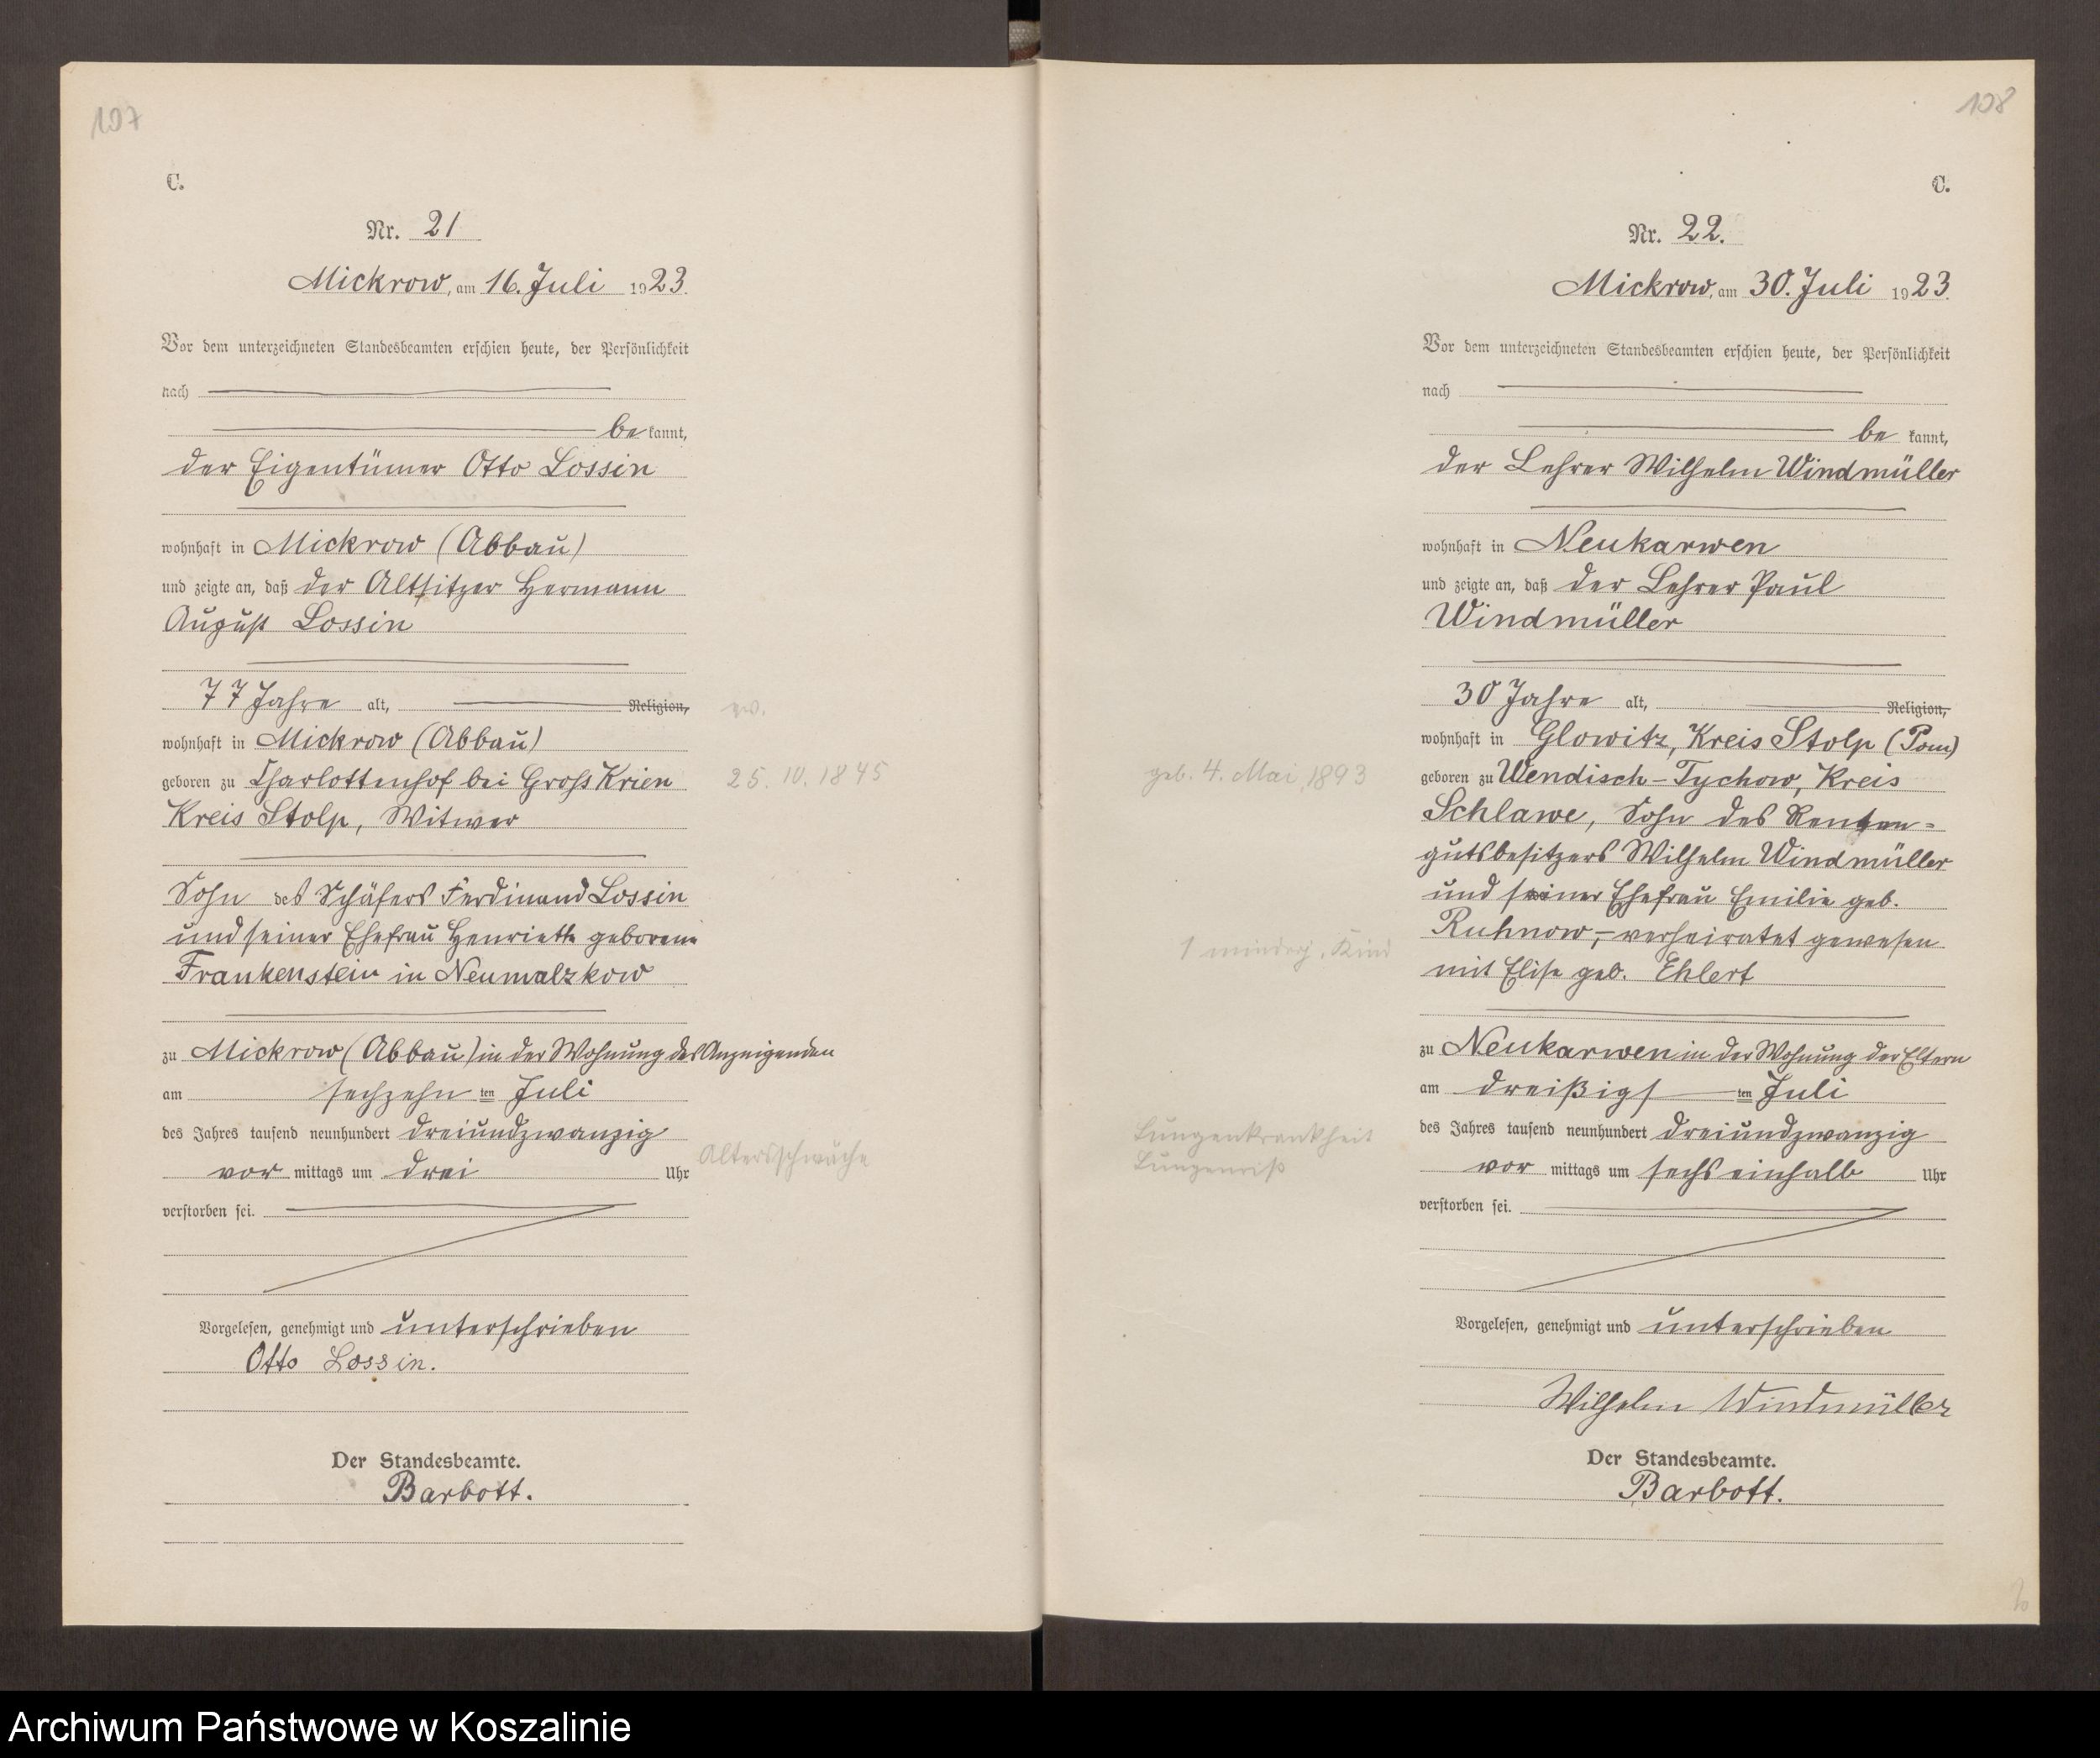 107
C.
Nr. 21
Mickrow, am 16. Juli 1923.
Vor dem unterzeichneten Standesbeamten erschien heute, der Persönlichkeit
nach
be kannt,
der Eigentümer Otto Lossin
wohnhaft in Mickrow (Abbau)
und zeigte an, daß der Altsitzer Hermann
August Lossin
77 Jahre alt, Religion, ev.
wohnhaft in Mickrow (Abbau)
geboren zu Charlottenhof bei Gross Krien 25. 10. 1845
Kreis Stolp, Witwer
Sohn des Schäfers Ferdinand Lossin
und seiner Ehefrau Henriette geborene
Frankenstein in Neumalzkow
zu Mickrow (Abbau) in der Wohnung des Anzeigenden
am sechzehn ten Juli
des Jahres tausend neunhundert dreiundzwanzig
Altersschwäche
vor mittags um drei Uhr
verstorben sei.
Vorgelesen, genehmigt und unterschrieben
Otto Lossin.
Der Standesbeamte.
Barbott.
108
C.
Nr. 22.
Mickrow, am 30. Juli 1923.
Vor dem unterzeichneten Standesbeamten erschien heute, der Persönlichkeit
nach
be kannt,
der Lehrer Wilhelm Windmüller
wohnhaft in Neukarwen
und zeigte an, daß der Lehrer Paul
Windmüller
30 Jahre alt, Religion,
wohnhaft in Glowitz, Kreis Stolp (Pom)
geb. 4. Mai 1893 geboren zu Wendisch-Tychow, Kreis
Schlawe, Sohn des Renten-
gutsbesitzers Wilhelm Windmüller
und seiner Ehefrau Emilie geb.
Ruhnow, - verheiratet gewesen
1 minderj. Kind
mit Elise geb. Ehlert
zu Neukarwen in der Wohnung der Eltern
am dreißigs ten Juli
des Jahres tausend neunhundert dreiundzwanzig
Lungenkrankheit
Lungenriß
vor mittags um sechs einhalb Uhr
verstorben sei.
Vorgelesen, genehmigt und unterschrieben
Wilhelm Windmüller
Der Standesbeamte.
Barbott.
Archiwum Państwowe w Koszalinie